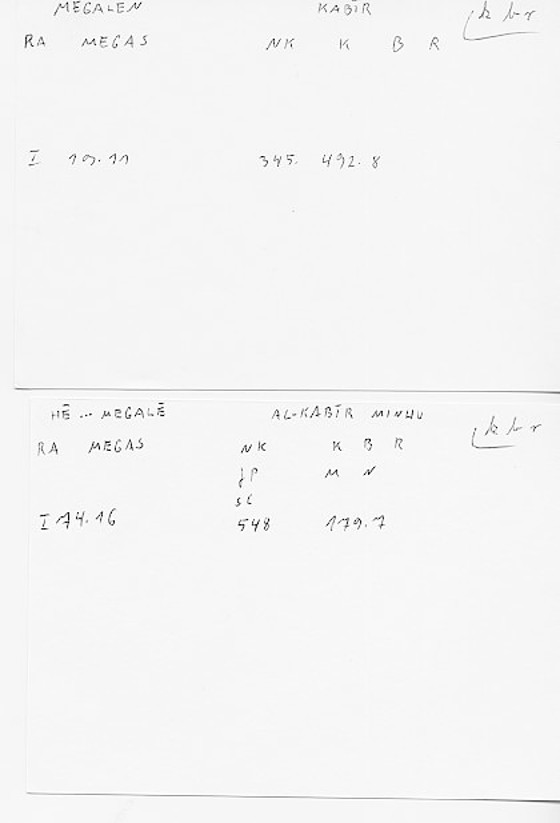 MEGALEN KABĪR k b r
RA MEGAS NK K B R
I 19.11 345. 492.8
HĒ ... MEGALĒ AL-KABĪR MINHU k b r
RA MEGAS NK K B R
JP M N
SL
I 74.16 548 179.7